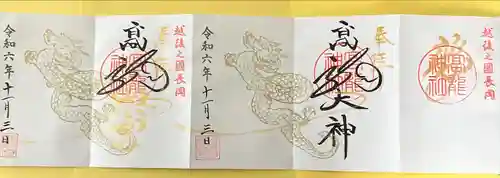 越後之國長岡
高龍
奉拝
高
大神
令和六年十一月三日
越後之國長岡
奉拝
高
令和六年十一月三日